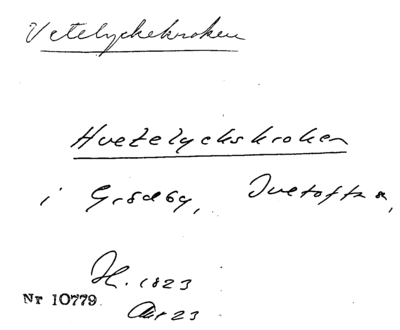 Vetelyckekroken
Hvetelyckskroken
i Grödby, Ivetofta,
H. 1823
Nr 10779
Akt 23